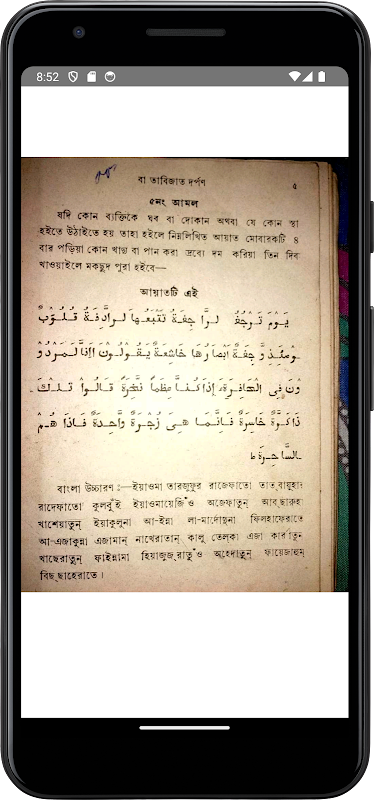 8:52
বা তাবিজাত দর্পণ ৫
৫নং আমল
যদি কোন ব্যক্তিকে ঘর বা দোকান অথবা যে কোন স্থা
হইতে উঠাইতে হয় তাহা হইলে নিম্নলিখিত আয়াত মোবারকটি ৪
বার পড়িয়া কোন খাদ্য বা পান করা দ্রব্যে দম করিয়া তিন দিব
খাওয়াইলে মকছুদ পুরা হইবে—
আয়াতটি এই
يَوْمَ تَرْجُفُ الرَّاجِفَةُ تَتْبَعُهَا الرَّادِفَةُ قُلُوْبٌ
وْمَئِذٍ وَّاجِفَةٌ اَبْصَارُهَا خَاشِعَةٌ يَقُوْلُوْنَ اَاِنَّا لَمَرْدُوْ
وْنَ فِى الْحَافِرَةِ اِذَا كُنَّا عِظَامًا نَّخِرَةً قَالُوْا تِلْكَ
كَرَّةٌ خَاسِرَةٌ فَاِنَّمَا هِىَ زَجْرَةٌ وَّاحِدَةٌ فَاِذَا هُمْ
السَّاهِرَةِ ط
বাংলা উচ্চারণ :—ইয়াওমা তারজুফুর রাজেফাতো তাত্‌বায়ুহার
রাদেফাতো কুলুবুঁই ইয়াওমায়েজিঁও অজেফাতুন্ আব্‌ছারুহা
খাশেয়াতুন্ ইয়াকুলুনা আ-ইন্না লা-মার্দোদুনা ফিলহাফেরাতে
আ-এজাকুন্না এজামান্ নাখেরাতান্ কালু তেলকা এজা কার্রাতুন
খাছেরাতুন্ ফাইন্নামা হিয়াজুজ্‌রাতুঁও অহেদাতুন্ ফায়েজাহুম
বিছ্‌ছাহেরাতে।